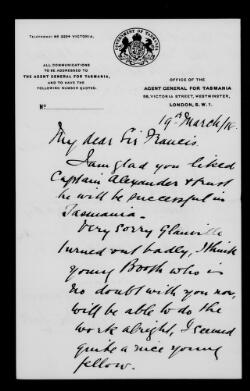 TELEPHONE: Nº 2204 VICTORIA.
GOVERNMENT OF TASMANIA
ALL COMMUNICATIONS
TO BE ADDRESSED TO
THE AGENT GENERAL FOR TASMANIA,
AND TO HAVE THE
FOLLOWING NUMBER QUOTED.
Nº
OFFICE OF THE
AGENT GENERAL FOR TASMANIA
56, VICTORIA STREET, WESTMINSTER,
LONDON, S.W. 1.
19th March/18.
My dear Sir Francis.
I am glad you liked
Captain Alexander & trust
he will be successful in
Tasmania.
Very sorry Glanville
turned out badly, I think
young Booth who is
no doubt with you now,
will be able to do the
work alright, I seemed
quite a nice young
fellow.